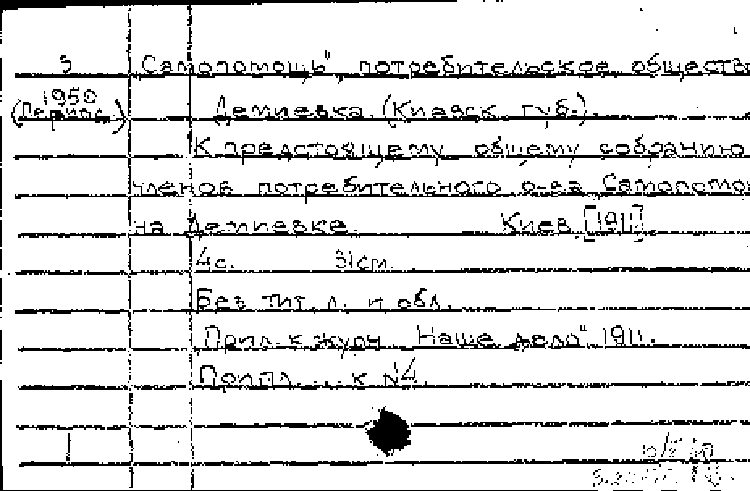 5 „Самопомощь", потребительское общество
1950 Демиевка (Киевск. губ.).
(Период.) К предстоящему общему собранию
членов потребительного о-ва Самопомо
на Демиевке. Киев, [1911]
4 с. 31 см.
Без тит. л. и обл.
Прил. к журн. „Наше дело" 1911.
Припл. ... к №4.
1